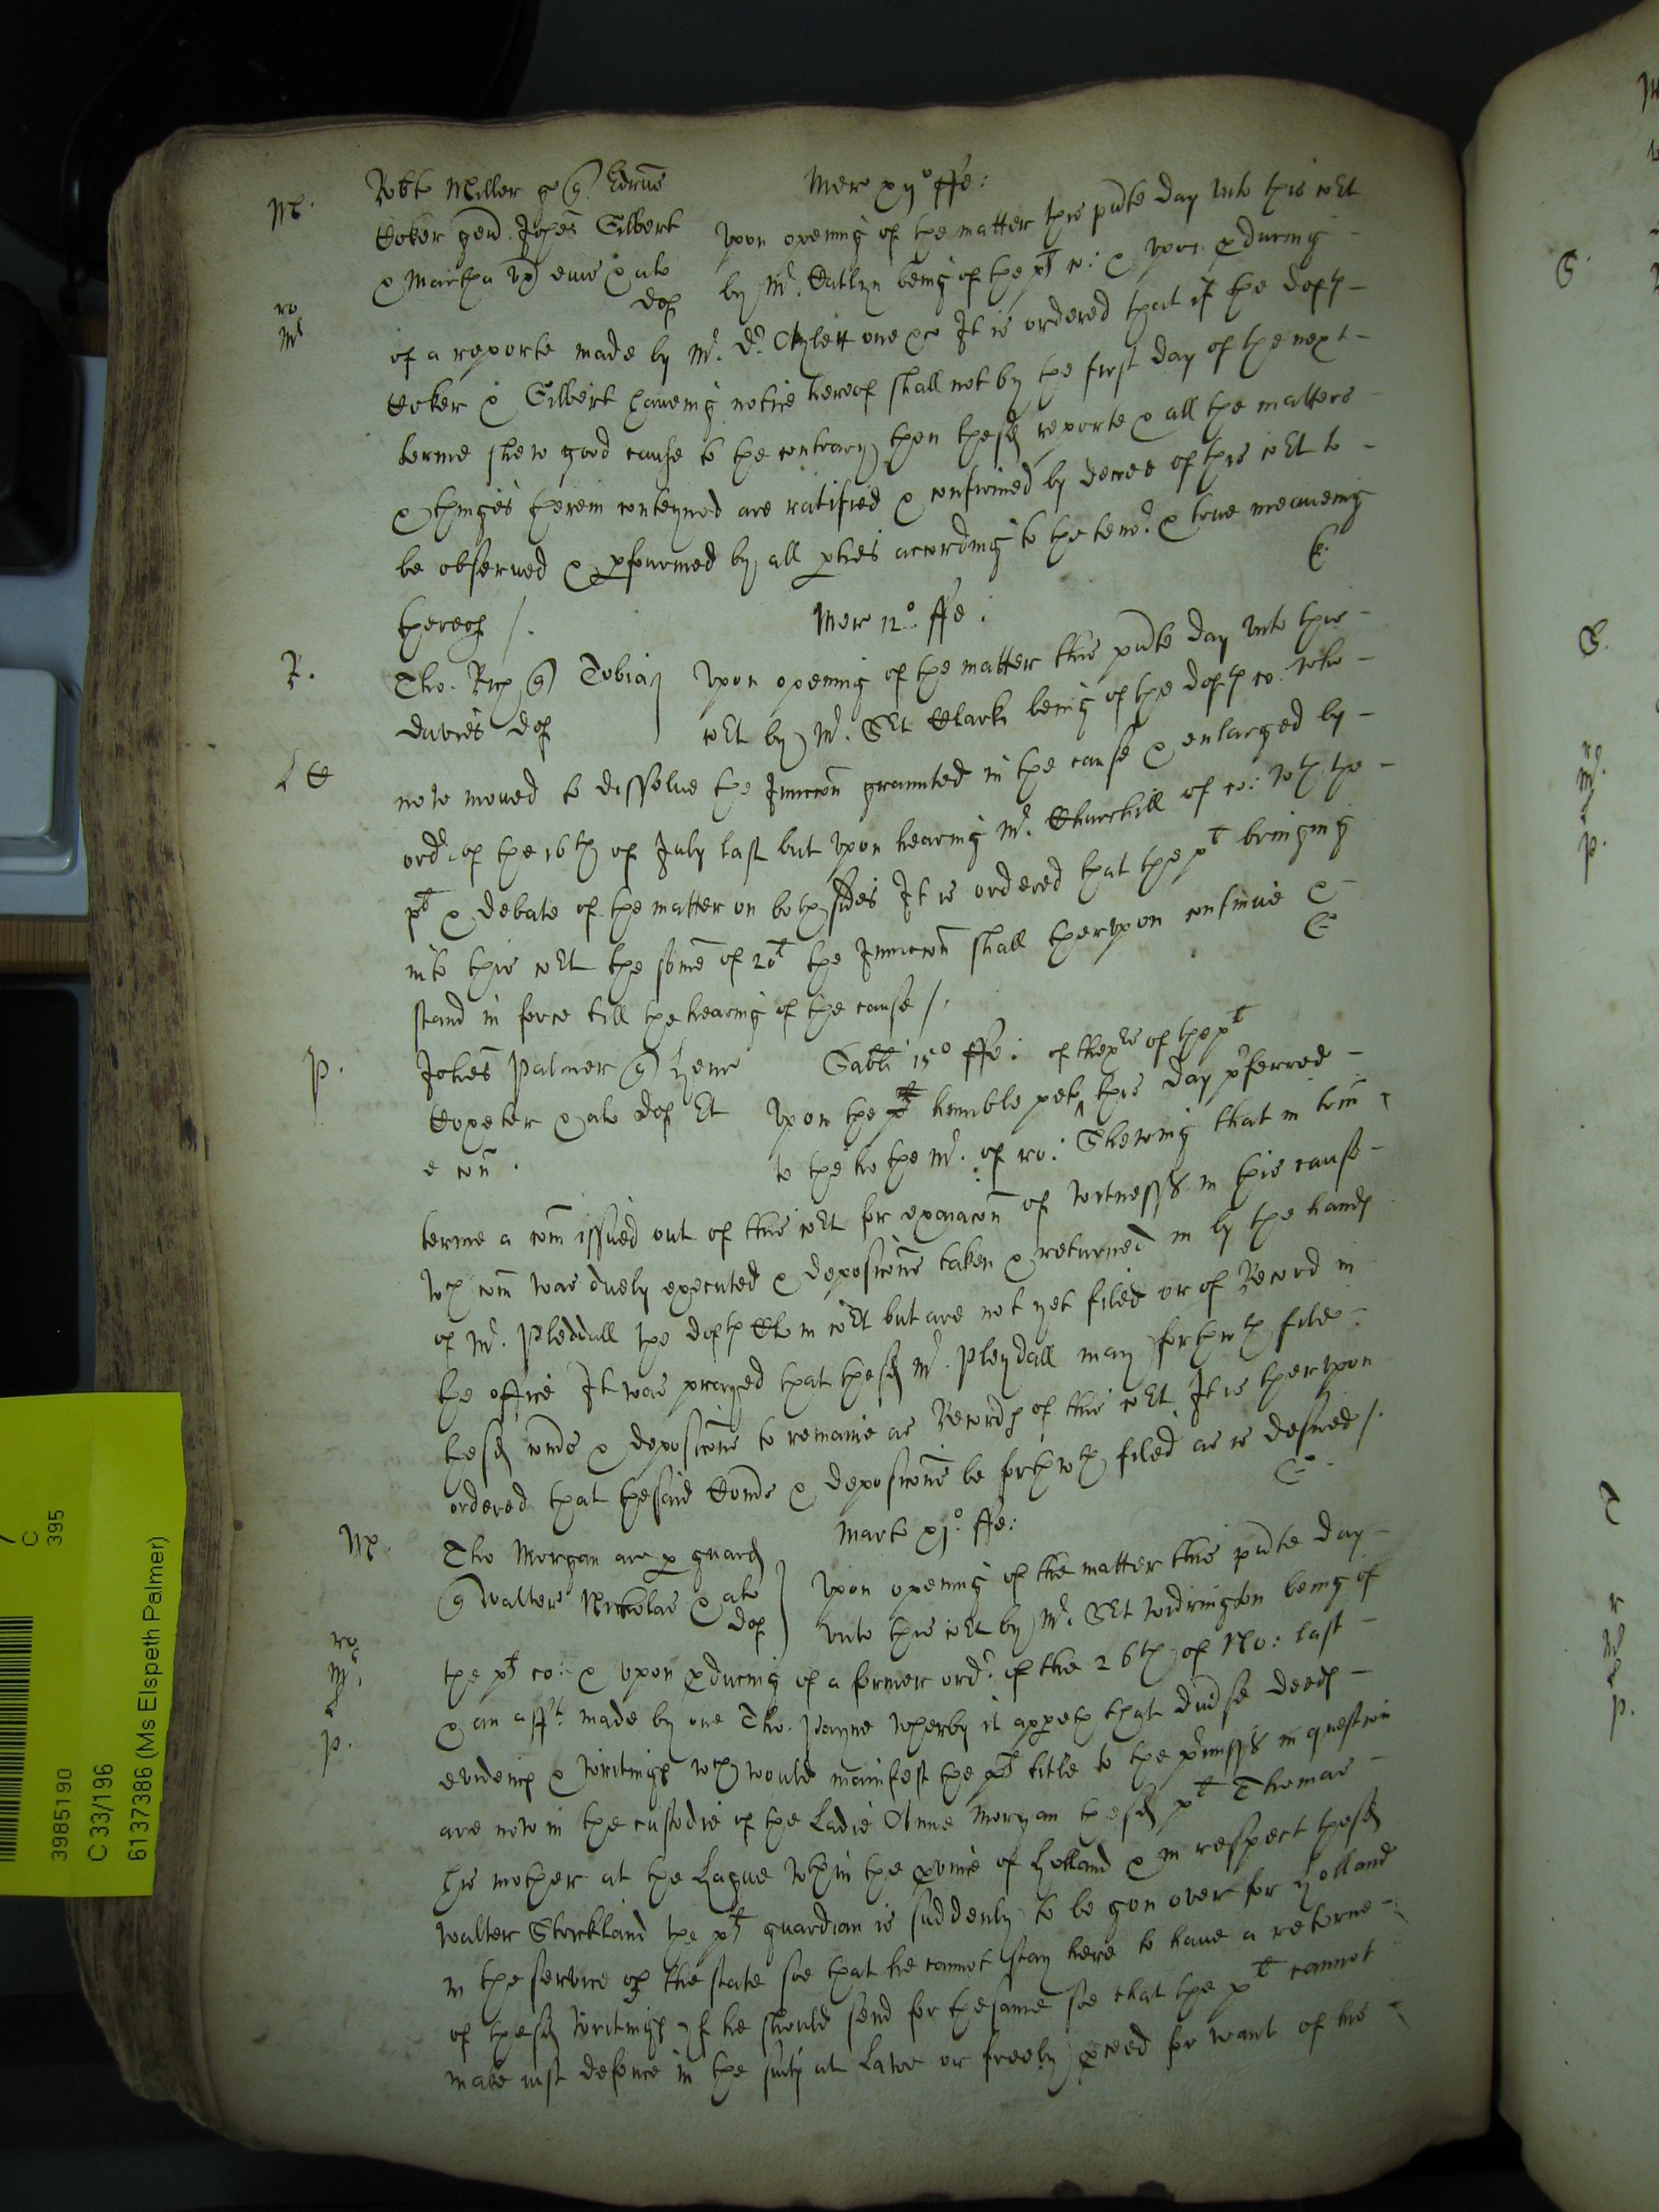 M.
Robte Miller ge q̃ Edrus
Coker gen Johes Gilbert
& Martha ux eius & als
def
Merc xijº ffe:
Upon opening of the matter this p̃nte day unto this coĒt
by Mr. Catlyn being of the plt co: & upon p̃duceing
ro
Mr
of a reporte made by Mr. Dr. Aylett one &c It is ordered that if the defts
Coker & Gilbert haueing notice hereof shall not by the first day of the next
terme shew good cause to the contrary then the sd reporte & all the matters
& thinges therein conteyned are ratified & confirmed by decree of this coĒt to
be observed & p̃fourmed by all p̃ties according to the tenor & true meaneing
thereof /.
Merc 12º. ffe:
R.
Tho. Rich q̃ Tobiaz
Davies def
Upon opening of the matter this p̃nte day unto this
coĒt by Mr. SĒt Clark being of the defts co. who
LC
now moued to dissolve the Iniuncc̃on graunted in the cause & enlarged by
ordr. of the 16th of July last but upon hearing Mr. Churchill of co: wth the
plt & debate of the matter on both sides It is ordered that the plt bringing
into this coĒt the som̃e of 20l the Iniuncc̃on shall therupon continue &
stand in force till the hearing of the cause /.
P.
Johes Palmer q̃ Henr
& als def Et
e con̄.
Sabti 15º ffe: of the of the plt
Upon the humble petc̃ this day p̃ferred
to the ho the Mr. of ro: Shewing that in
terme a com̃ issued out of this coĒt for exaıac̃on of witnesses in this cause
wch com̃ was duely executed & deposic̃ons taken & returned in by the hands
of Mr. Pleddall the defts Clk in coĒt but are not yet filed or of Record in
the office It was prayed that the sd Mr. Pleydall may forthwth file
the sd com̃s & deposic̃ons to remaine as Records of this coĒt It is therupon
ordered that the said Com̃s & deposic̃ons be forthwth filed as is desired /.
M.
Tho Morgan ar p guard
q̃ Walter Nicholas & als
def
Marti xjº. ffe:
Upon opening of the matter this p̃nte day
unto this coĒt by Mr. SĒt Widrington being of
ro
Mr.
P.
the plt co: & upon p̃duceing of a former ordr. of the 26th of No: last
& an afft. made by one Tho. Payne wherby it app̃eth that div̾se deeds
evidences & writings wch would manifest the plts title to the p̃misses in question
are now in the custodie of the Ladie Anne Morgan the sd plt Thomas
his mother at the Hague wthin the p̃vince of Holland & in respect the sd
Walter Strickland the plts guardian is suddenly to be gon over for Holland
in the service of the state soe that he cannot stay here to have a returne
of the sd writings if he should send for the same soe that the plt cannot
make iust defence in the suits at Lawe or freely p̃ceed for want of his
3985190
C 33/196
6137386 (Ms Elspeth Palmer)
7
C
395